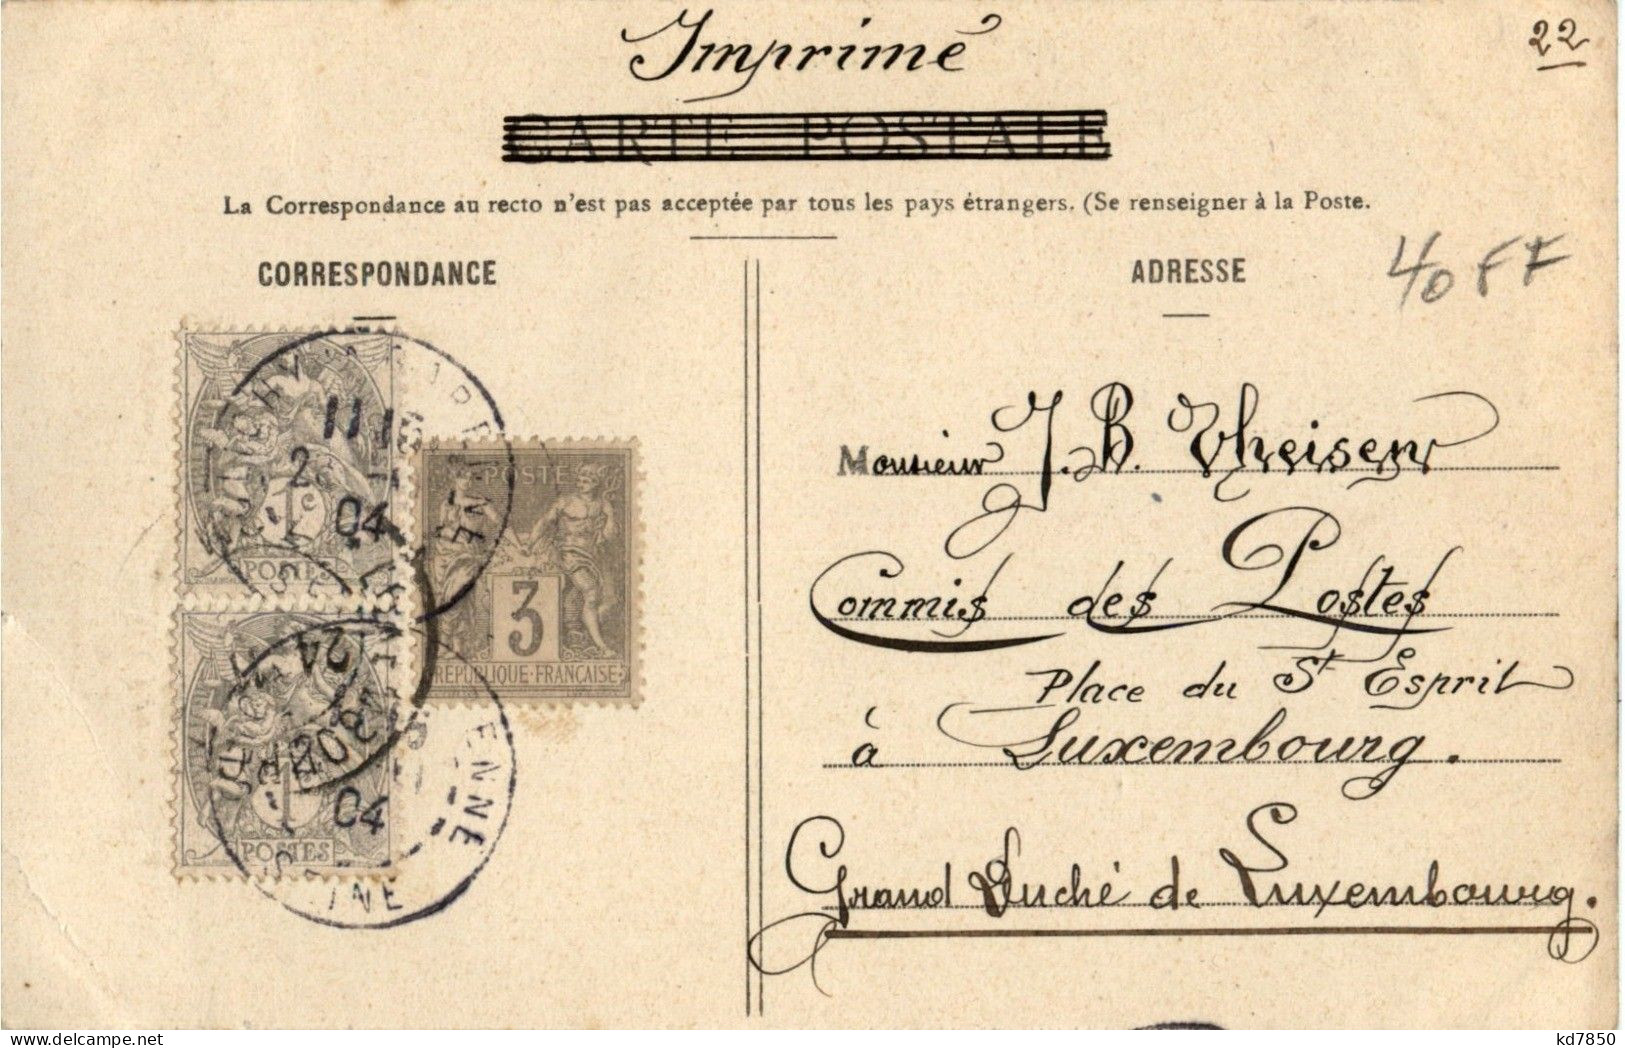 Imprimé
22
CARTE POSTALE
La Correspondance au recto n'est pas acceptée par tous les pays étrangers. (Se renseigner à la Poste.
CORRESPONDANCE
ADRESSE
40 FF
Monsieur J. B. Theisen
Commis des Postes
Place du St Esprit
à Luxembourg.
Grand Duché de Luxembourg.
1c
POSTES
POSTE
3
RÉPUBLIQUE FRANÇAISE
1
POSTES
11
2
04
24
04
ENNE
www.delcampe.net
kd7850